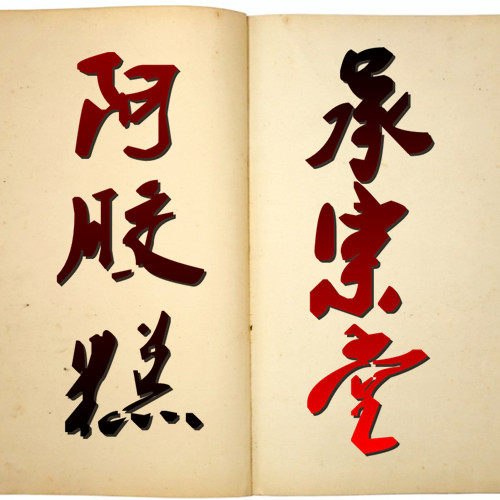 承宗堂
阿胶糕